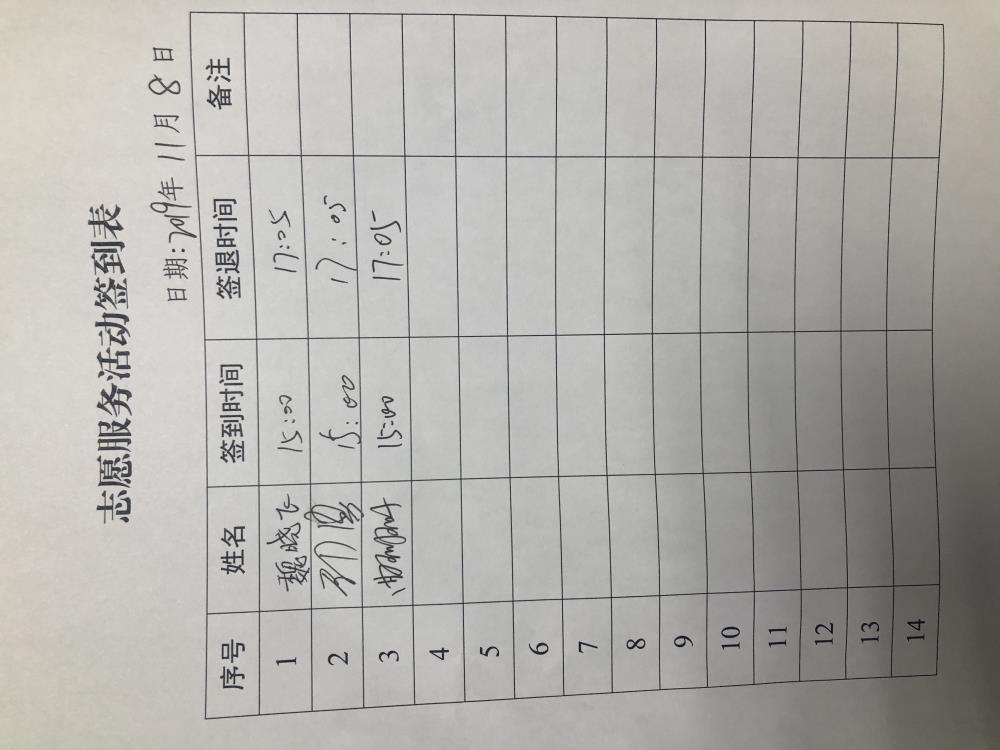 志愿服务活动签到表
日期:2019年 11月 8日
序号 姓名 签到时间 签退时间 备注
1 魏晓飞 15:00 17:05
2 15:00 17:05
3 15:00 17:05
4
5
6
7
8
9
10
11
12
13
14